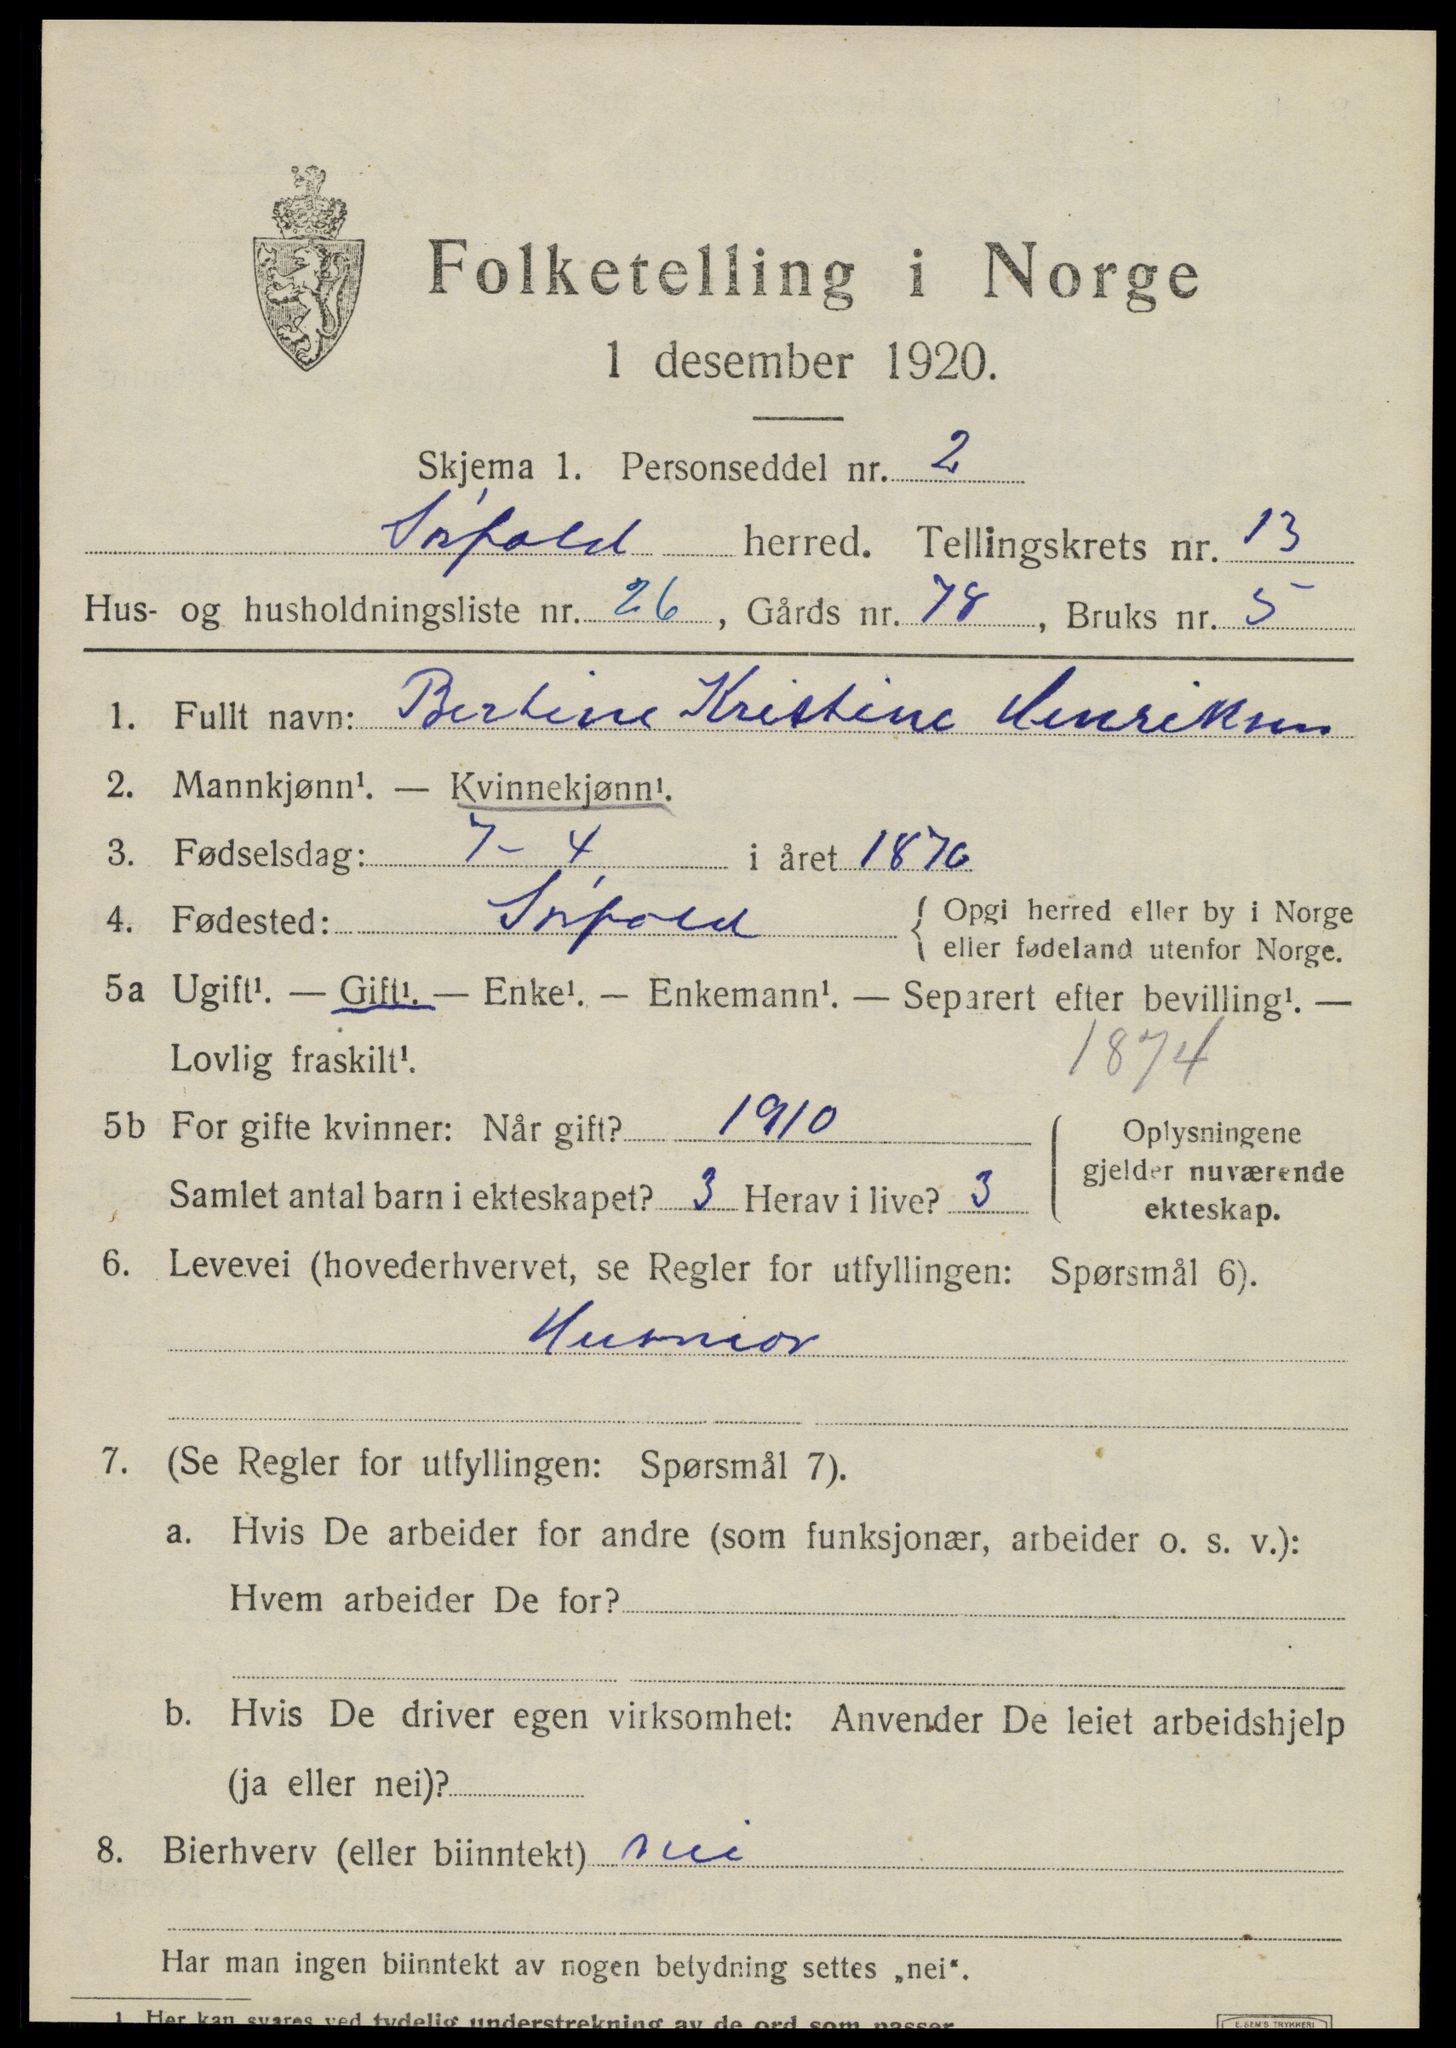 Folketelling i Norge
1 desember 1920.
Skjema 1. Personseddel nr. 2
Sørfold herred. Tellingskrets nr. 13
Hus- og husholdningsliste nr. 26, Gårds nr. 78, Bruks nr. 5
1. Fullt navn: Bertine Kristine Henriksen
2. Mannkjønn¹. — Kvinnekjønn¹.
3. Fødselsdag: 7-4 i året 1876
4. Fødested: Sørfold { Opgi herred eller by i Norge
eller fødeland utenfor Norge.
5a Ugift¹. — Gift¹. — Enke¹. — Enkemann¹. — Separert efter bevilling¹. —
Lovlig fraskilt¹. 1874
5b For gifte kvinner: Når gift? 1910
Samlet antal barn i ekteskapet? 3 Herav i live? 3
Oplysningene
gjelder nuværende
ekteskap.
6. Levevei (hovederhvervet, se Regler for utfyllingen: Spørsmål 6).
Husmor
7. (Se Regler for utfyllingen: Spørsmål 7).
a. Hvis De arbeider for andre (som funksjonær, arbeider o. s. v.):
Hvem arbeider De for?
b. Hvis De driver egen virksomhet: Anvender De leiet arbeidshjelp
(ja eller nei)?
8. Bierhverv (eller biinntekt) nei
Har man ingen biinntekt av nogen betydning settes „nei“.
1. Her kan svares ved tydelig understrekning av de ord som passer.
E. SEM'S TRYKKERI